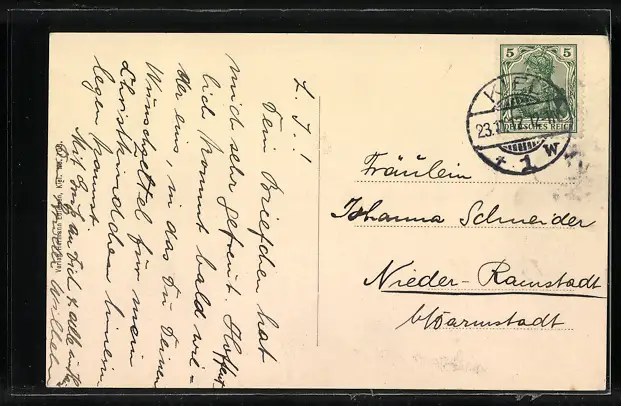 L. J!
Dein Briefchen hat
mich sehr gefreut. Hoffent
lich kommt bald wie-
der eins, in das Du Deinen
Wunschzettel für mein
Christkindchen hinein
legen kannst.
Mit Gruß an Dich & alle
Wilhelm
5 5
DEUTSCHES REICH
KIEL
23.
1 W
Fräulein
Johanna Schneider
Nieder-Ramstadt
b/Darmstadt